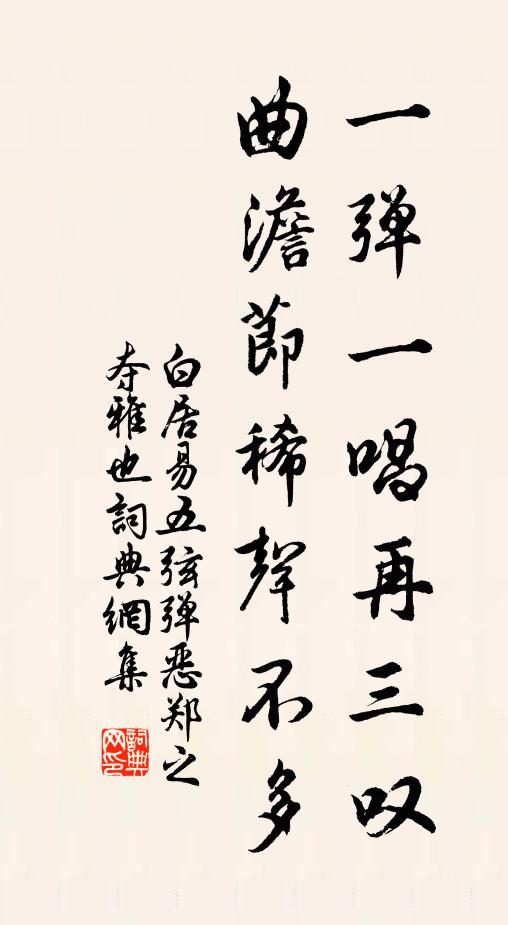 一弹一唱再三叹
曲澹節稀聲不多
白居易五弦弹恶郑之
夺雅也詞典網集
詞典网印